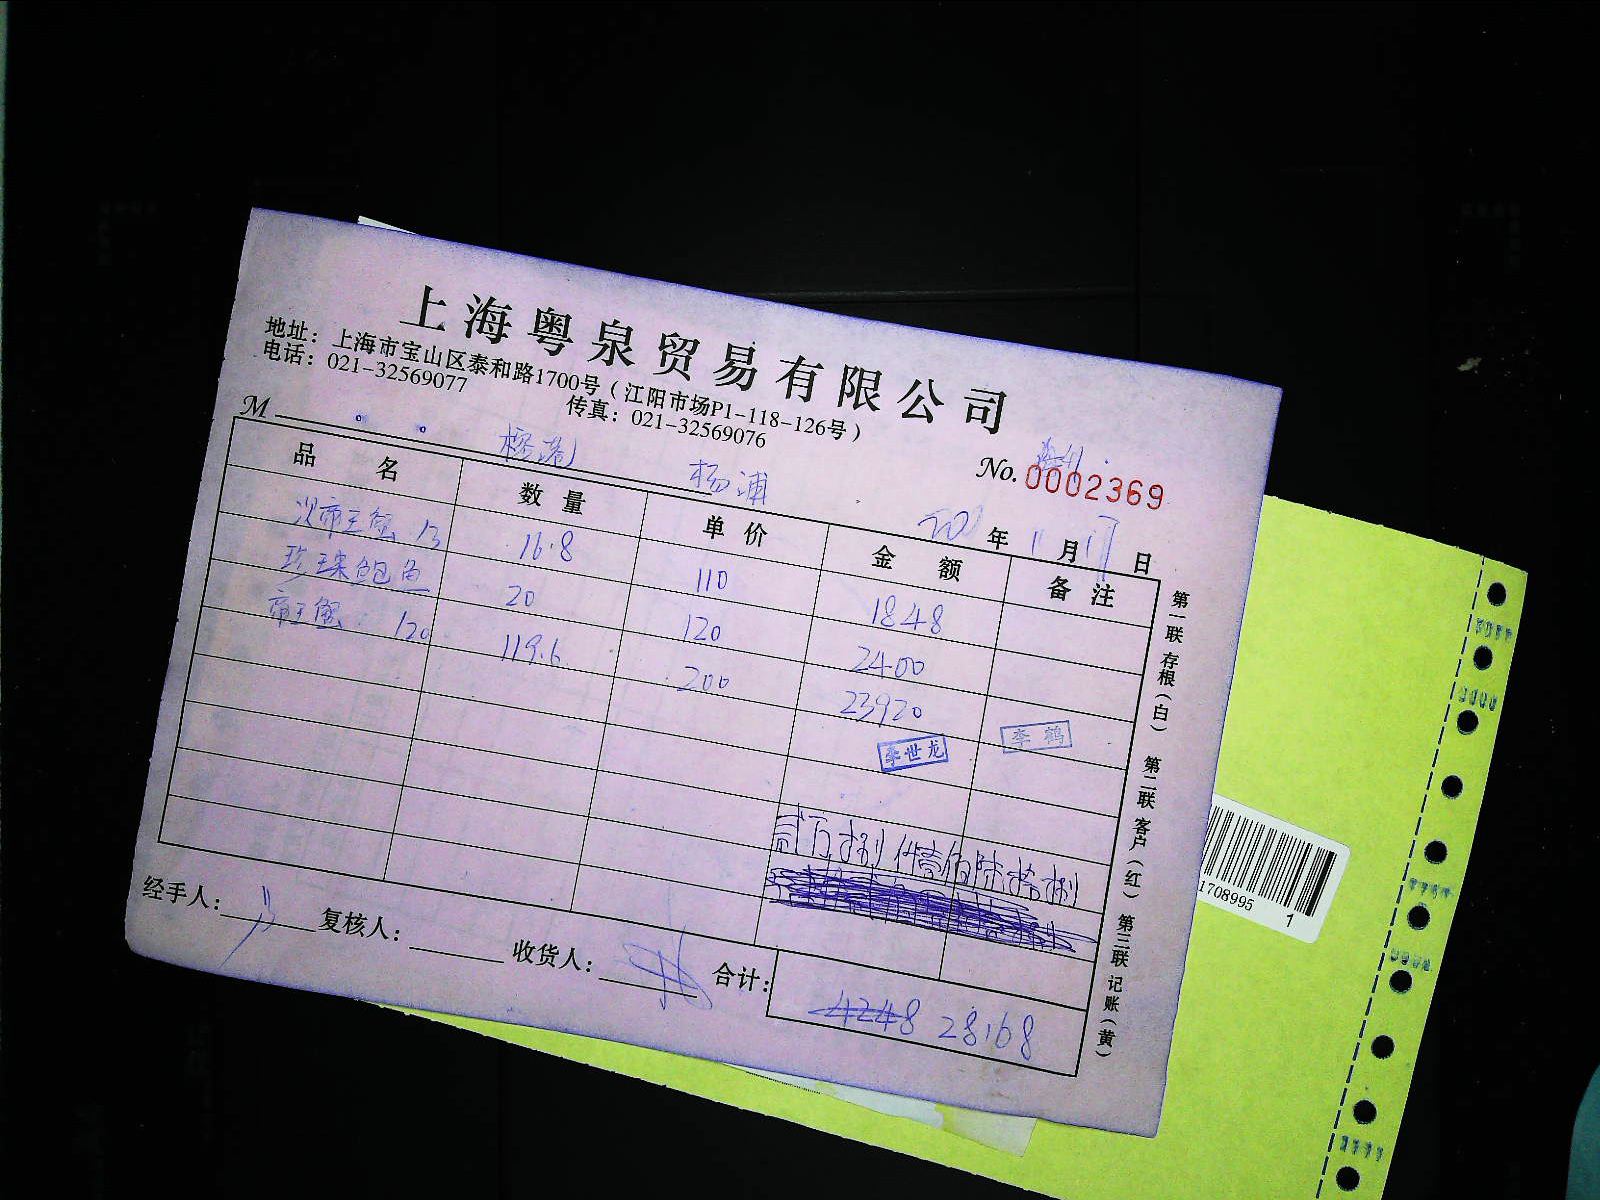 上海粤泉贸易有限公司
地址：上海市宝山区泰和路1700号（江阳市场P1-118-126号）
电话：021-32569077 传真：021-32569076
M
杨浦
No. 0002369
年 11 月 17 日
品名 数量 单价 金额 备注
次帝王蟹 13 16.8 110 1848
珍珠鲍鱼 20 120 2400
帝王蟹 120 119.6 200 23920
李世龙 李鹤
贰万捌仟壹佰陆拾捌
经手人： 复核人： 收货人： 合计：4248 28168
第一联 存根（白） 第二联 客户（红） 第三联 记账（黄）
1708995 1